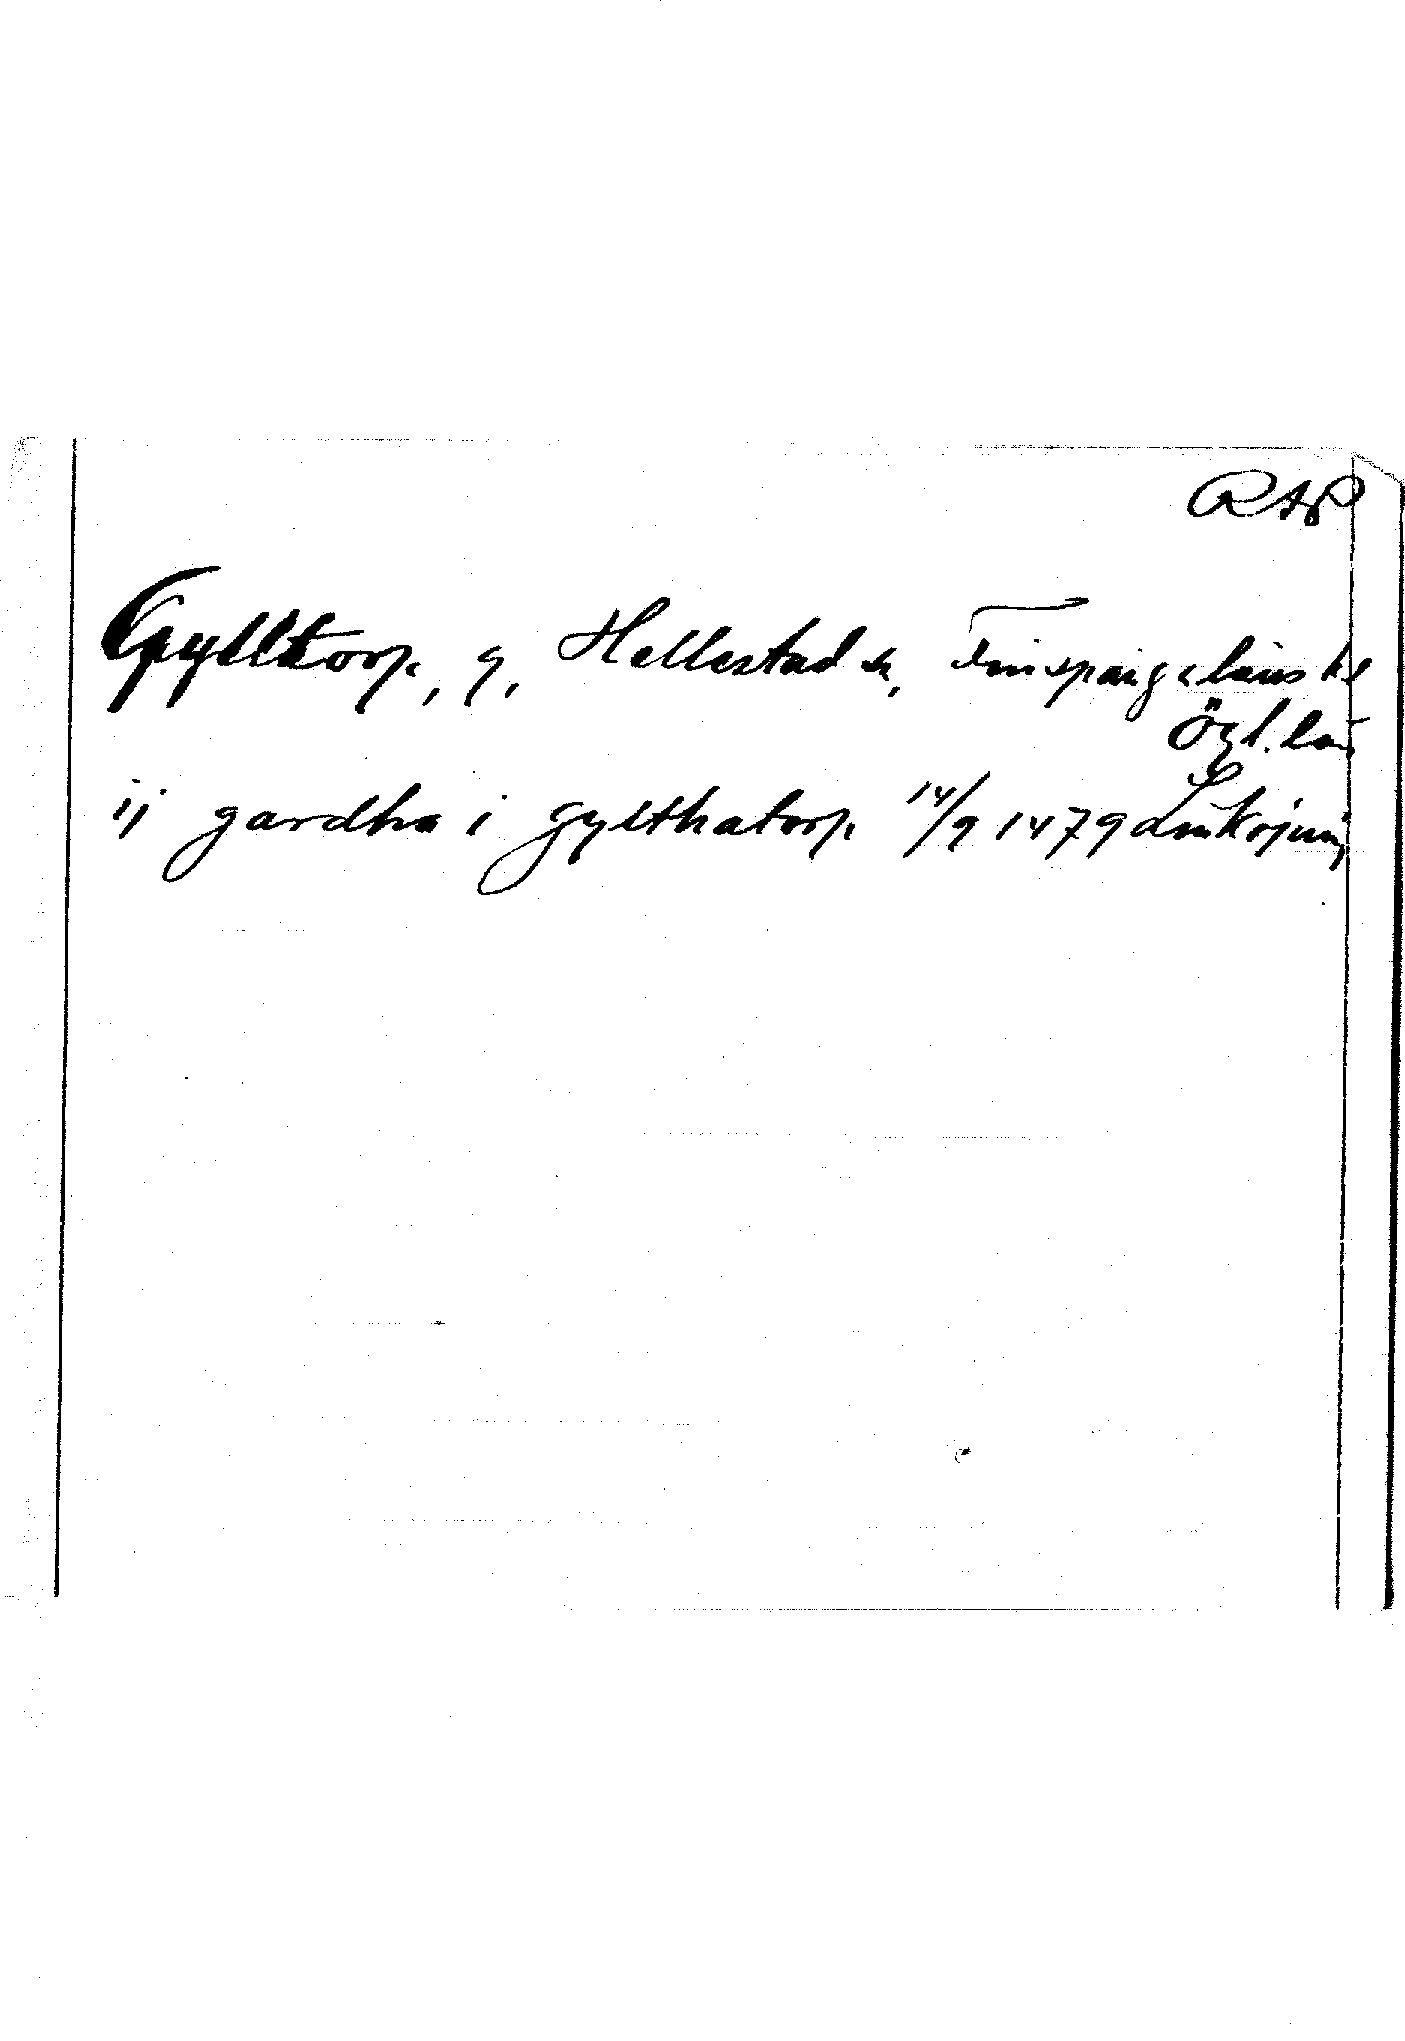 RAP
Gylltorp, g, Hellestad sn, Finspångsläns hd
Ögl. län
ij gardha i gylthatorp 14/9 1479 Linköping